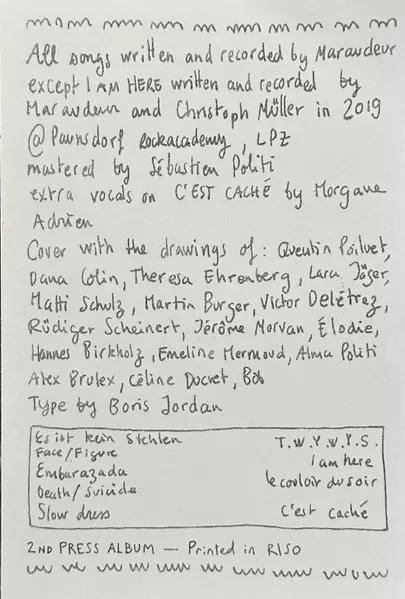 All songs written and recorded by Maraudeur
except I AM HERE written and recorded by
Maraudeur and Christoph Müller in 2019
@ Paunsdorf Rockacademy, LPZ
mastered by Sébastien Politi
extra vocals on C'EST CACHÉ by Morgane
Adrien
Cover with the drawings of : Quentin Poilvet,
Dana Colin, Theresa Ehrenberg, Lara Jäger,
Matti Schulz, Martin Burger, Victor Delétraz,
Rüdiger Scheinert, Jérôme Morvan, Élodie,
Hannes Birkholz, Emeline Mermoud, Alma Politi
Alex Brulex, Céline Ducret, Bob
Type by Boris Jordan
Es ist kein Stehlen
Face/Figure
Embarazada
Death/Suicide
Slow dress
T.W.Y.W.Y.S.
I am here
le couloir du soir
C'est caché
2ND PRESS ALBUM — Printed in RISO